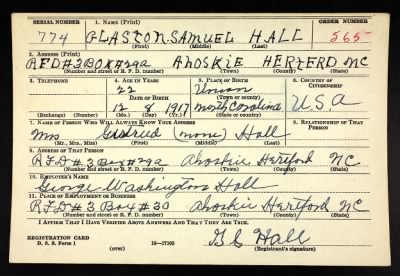 SERIAL NUMBER 1. NAME (Print) ORDER NUMBER
774 GLASTON SAMUEL HALL 565
(First) (Middle) (Last)
2. ADDRESS (Print)
RFD#3 BOX#29a AHOSKIE HERTFORD NC
(Number and street or R. F. D. number) (Town) (County) (State)
3. TELEPHONE 4. AGE IN YEARS 5. PLACE OF BIRTH 6. COUNTRY OF CITIZENSHIP
22 Union
DATE OF BIRTH (Town or county)
12 8 1917 North Carolina U.S.A
(Exchange) (Number) (Mo.) (Day) (Yr.) (State or country)
7. NAME OF PERSON WHO WILL ALWAYS KNOW YOUR ADDRESS 8. RELATIONSHIP OF THAT PERSON
Mrs (none) Hall
(Mr., Mrs., Miss) (First) (Middle) (Last)
9. ADDRESS OF THAT PERSON
RFD#3 Box#29a Ahoskie Hertford NC
(Number and street or R. F. D. number) (Town) (County) (State)
10. EMPLOYER'S NAME
George Washington Hall
11. PLACE OF EMPLOYMENT OR BUSINESS
RFD#3 Box#30 Ahoskie Hertford NC
(Number and street or R. F. D. number) (Town) (County) (State)
I AFFIRM THAT I HAVE VERIFIED ABOVE ANSWERS AND THAT THEY ARE TRUE.
REGISTRATION CARD
D. S. S. Form 1 (over) 16—17105 Hall
(Registrant's signature)